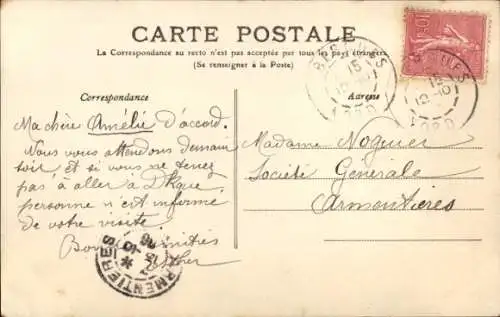 CARTE POSTALE
La Correspondance au recto n'est pas acceptée par tous les pays étrangers.
(Se renseigner à la Poste)
Correspondance
Adresse
Ma chère Amélie D'accord.
Nous vous attendons demain
soir, et si vous ne tenez
pas à aller à Dkque,
personne n'est informé
de votre visite.
Bonnes amitiés
Esther
Madame Noguer
Société Générale
Armentières
ARMENTIERES
NORD